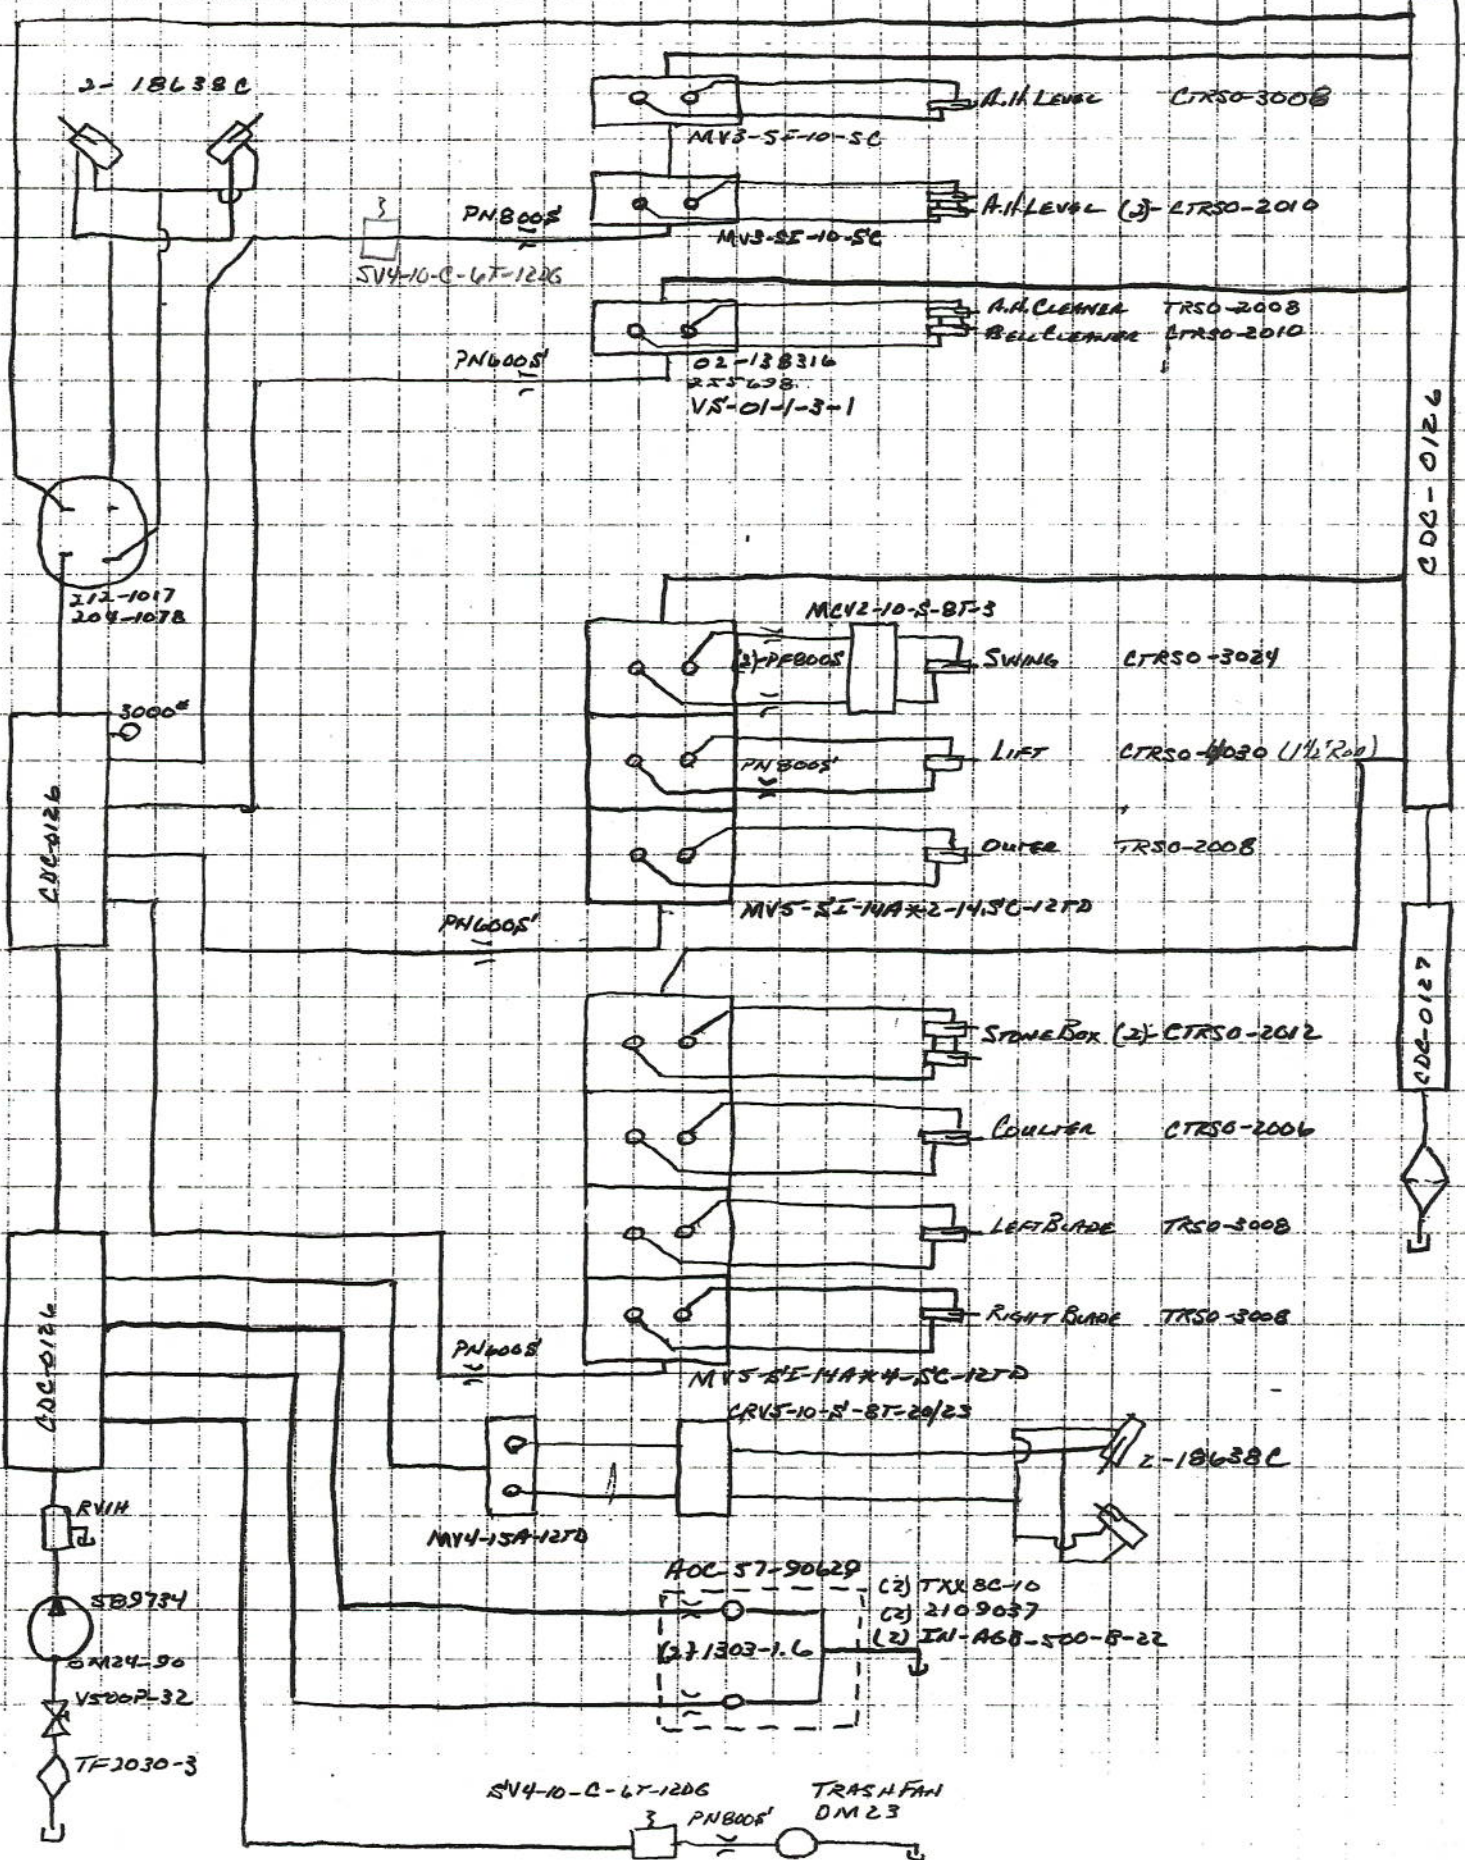 2- 18638C
A.H. LEVEL CTRSO-3008
MV3-SI-10-SC
A.H. LEVEL (2)- CTRSO-2010
PN800S
MV3-SI-10-SC
SV4-10-C-6T-12DG
A.H. CLEANER TRSO-2008
BELL CLEANER CTRSO-2010
PN600S
02-138316
255698
VS-01-1-3-1
CDC-0126
212-1017
204-1078
MCV2-10-S-8T-3
(2)-PF800S
SWING CTRSO-3024
3000#
LIFT CTRSO-4030 (1½" ROD)
PN800S
CDC-0126
OUTER TRSO-2008
MV5-SI-14A*2-14.SC-12TD
PN600S
CDC-0127
STONE BOX (2)- CTRSO-2012
COULTER CTRSO-2006
LEFT BLADE TRSO-3008
CDC-0126
RIGHT BLADE TRSO-3008
PN600S
MV5-SI-14A*4-SC-12TD
CRV5-10-S-8T-20/25
2-18638C
RV1H
MV4-15A-12TD
AOC-57-90629
(2) TXX8C-10
(2) 2109037
(2) IN-AGB-500-B-22
(2) 1303-1.6
SB9734
DM24-90
V500P-32
TF2030-3
SV4-10-C-6T-12DG
PN800S
TRASH FAN
DM23